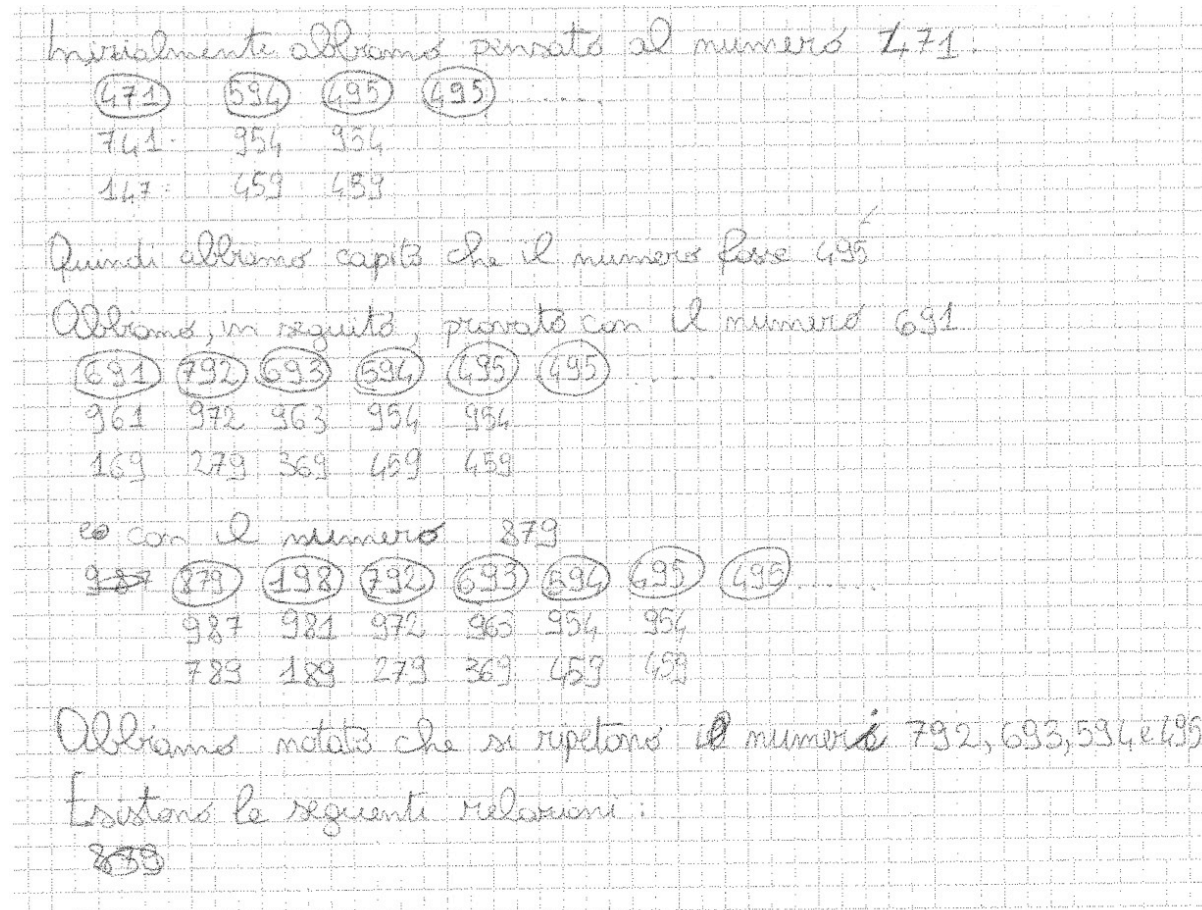 Inizialmente abbiamo pensato al numero 471:
471 594 495 495 ......
741 954 954
147 459 459
Quindi abbiamo capito che il numero fosse 495
Abbiamo, in seguito, provato con il numero 691
691 792 693 594 495 495 ......
961 972 963 954 954
169 279 369 459 459
e con il numero 879
987 879 198 792 693 594 495 495 ....
987 981 972 963 954 954
789 189 279 369 459 459
Abbiamo notato che si ripetono i numeri 792, 693, 594 e 495
Esistono le seguenti relazioni:
879